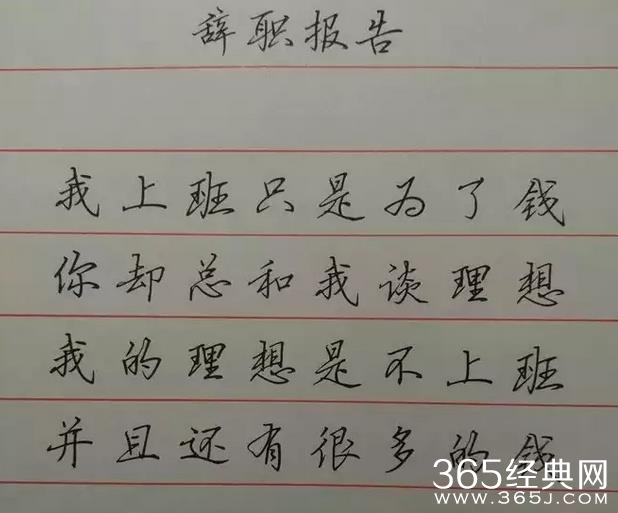 辞职报告
我上班只是为了钱
你却总和我谈理想
我的理想是不上班
并且还有很多的钱
365经典网
www.365J.com